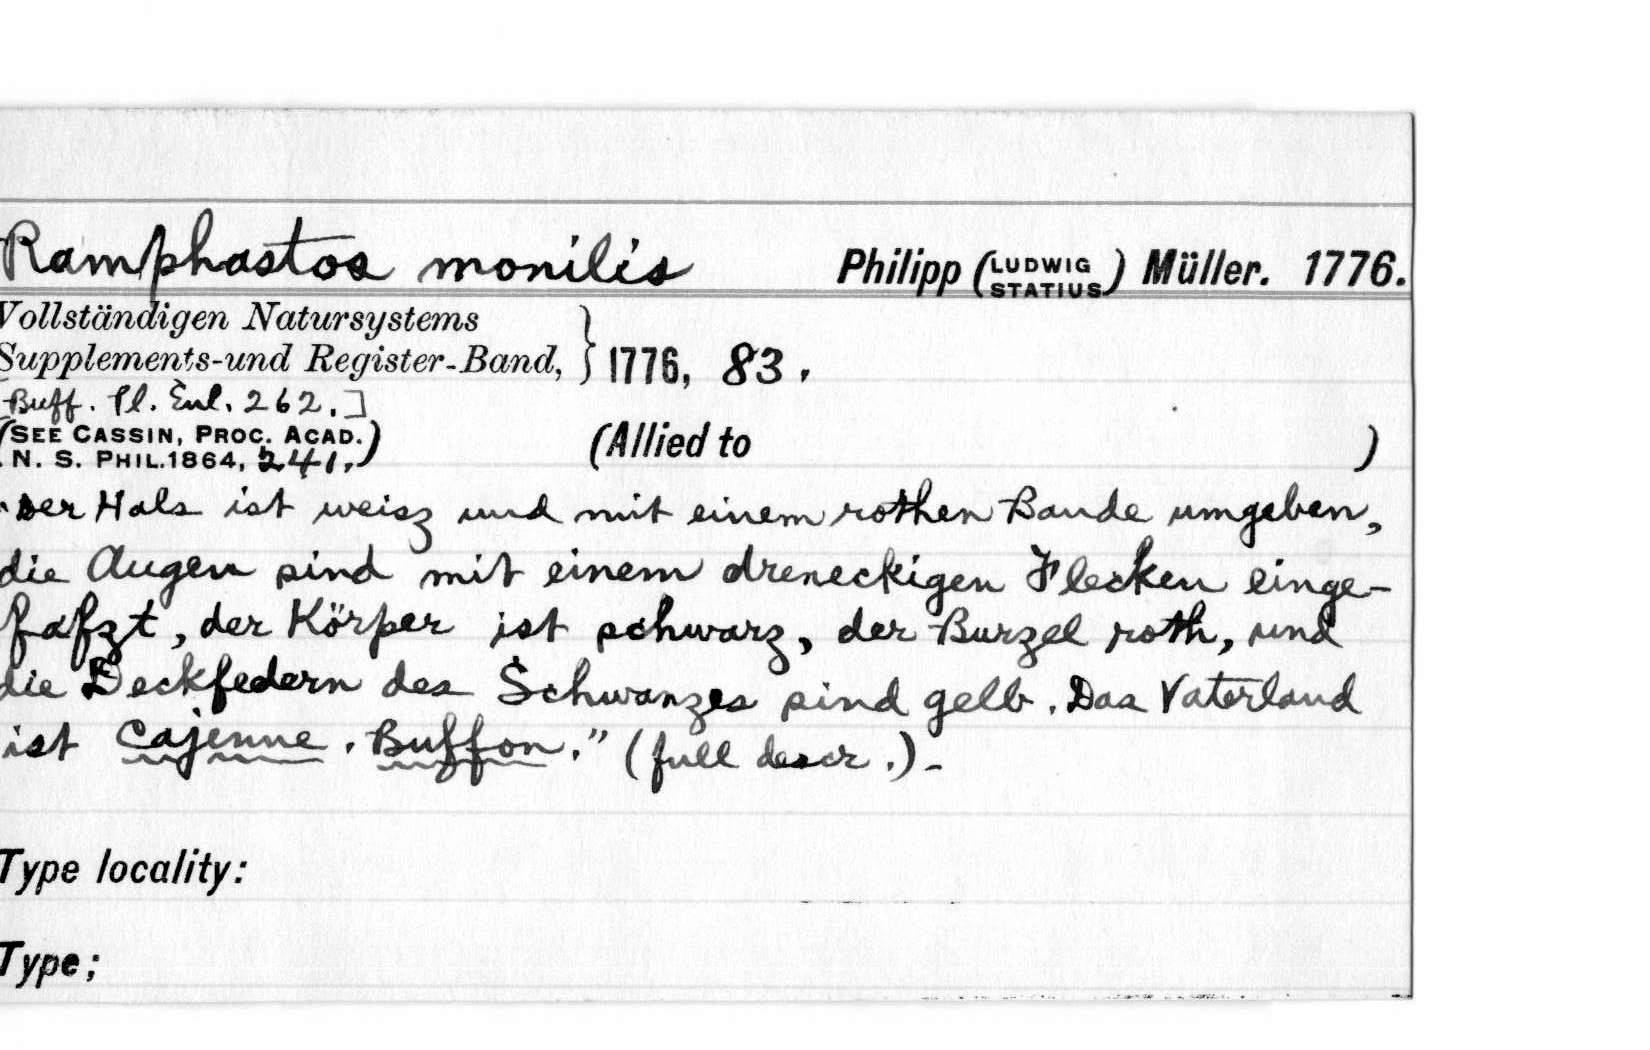 Ramphastos monilis Philipp (LUDWIG STATIUS) Müller. 1776.
Vollständigen Natursystems
Supplements-und Register-Band, } 1776, 83.
[Buff. Pl. Enl. 262.]
(SEE CASSIN, PROC. ACAD.
N. S. PHIL. 1864, 241.) (Allied to )
"Der Hals ist weisz und mit einem rothen Bande umgeben,
die Augen sind mit einem dreneckigen Flecken einge-
fafzt, der Körper ist schwarz, der Burzel roth, und
die Deckfedern des Schwanzes sind gelb. Das Vaterland
ist Cajenne. Buffon." (full descr.)-
Type locality:
Type;